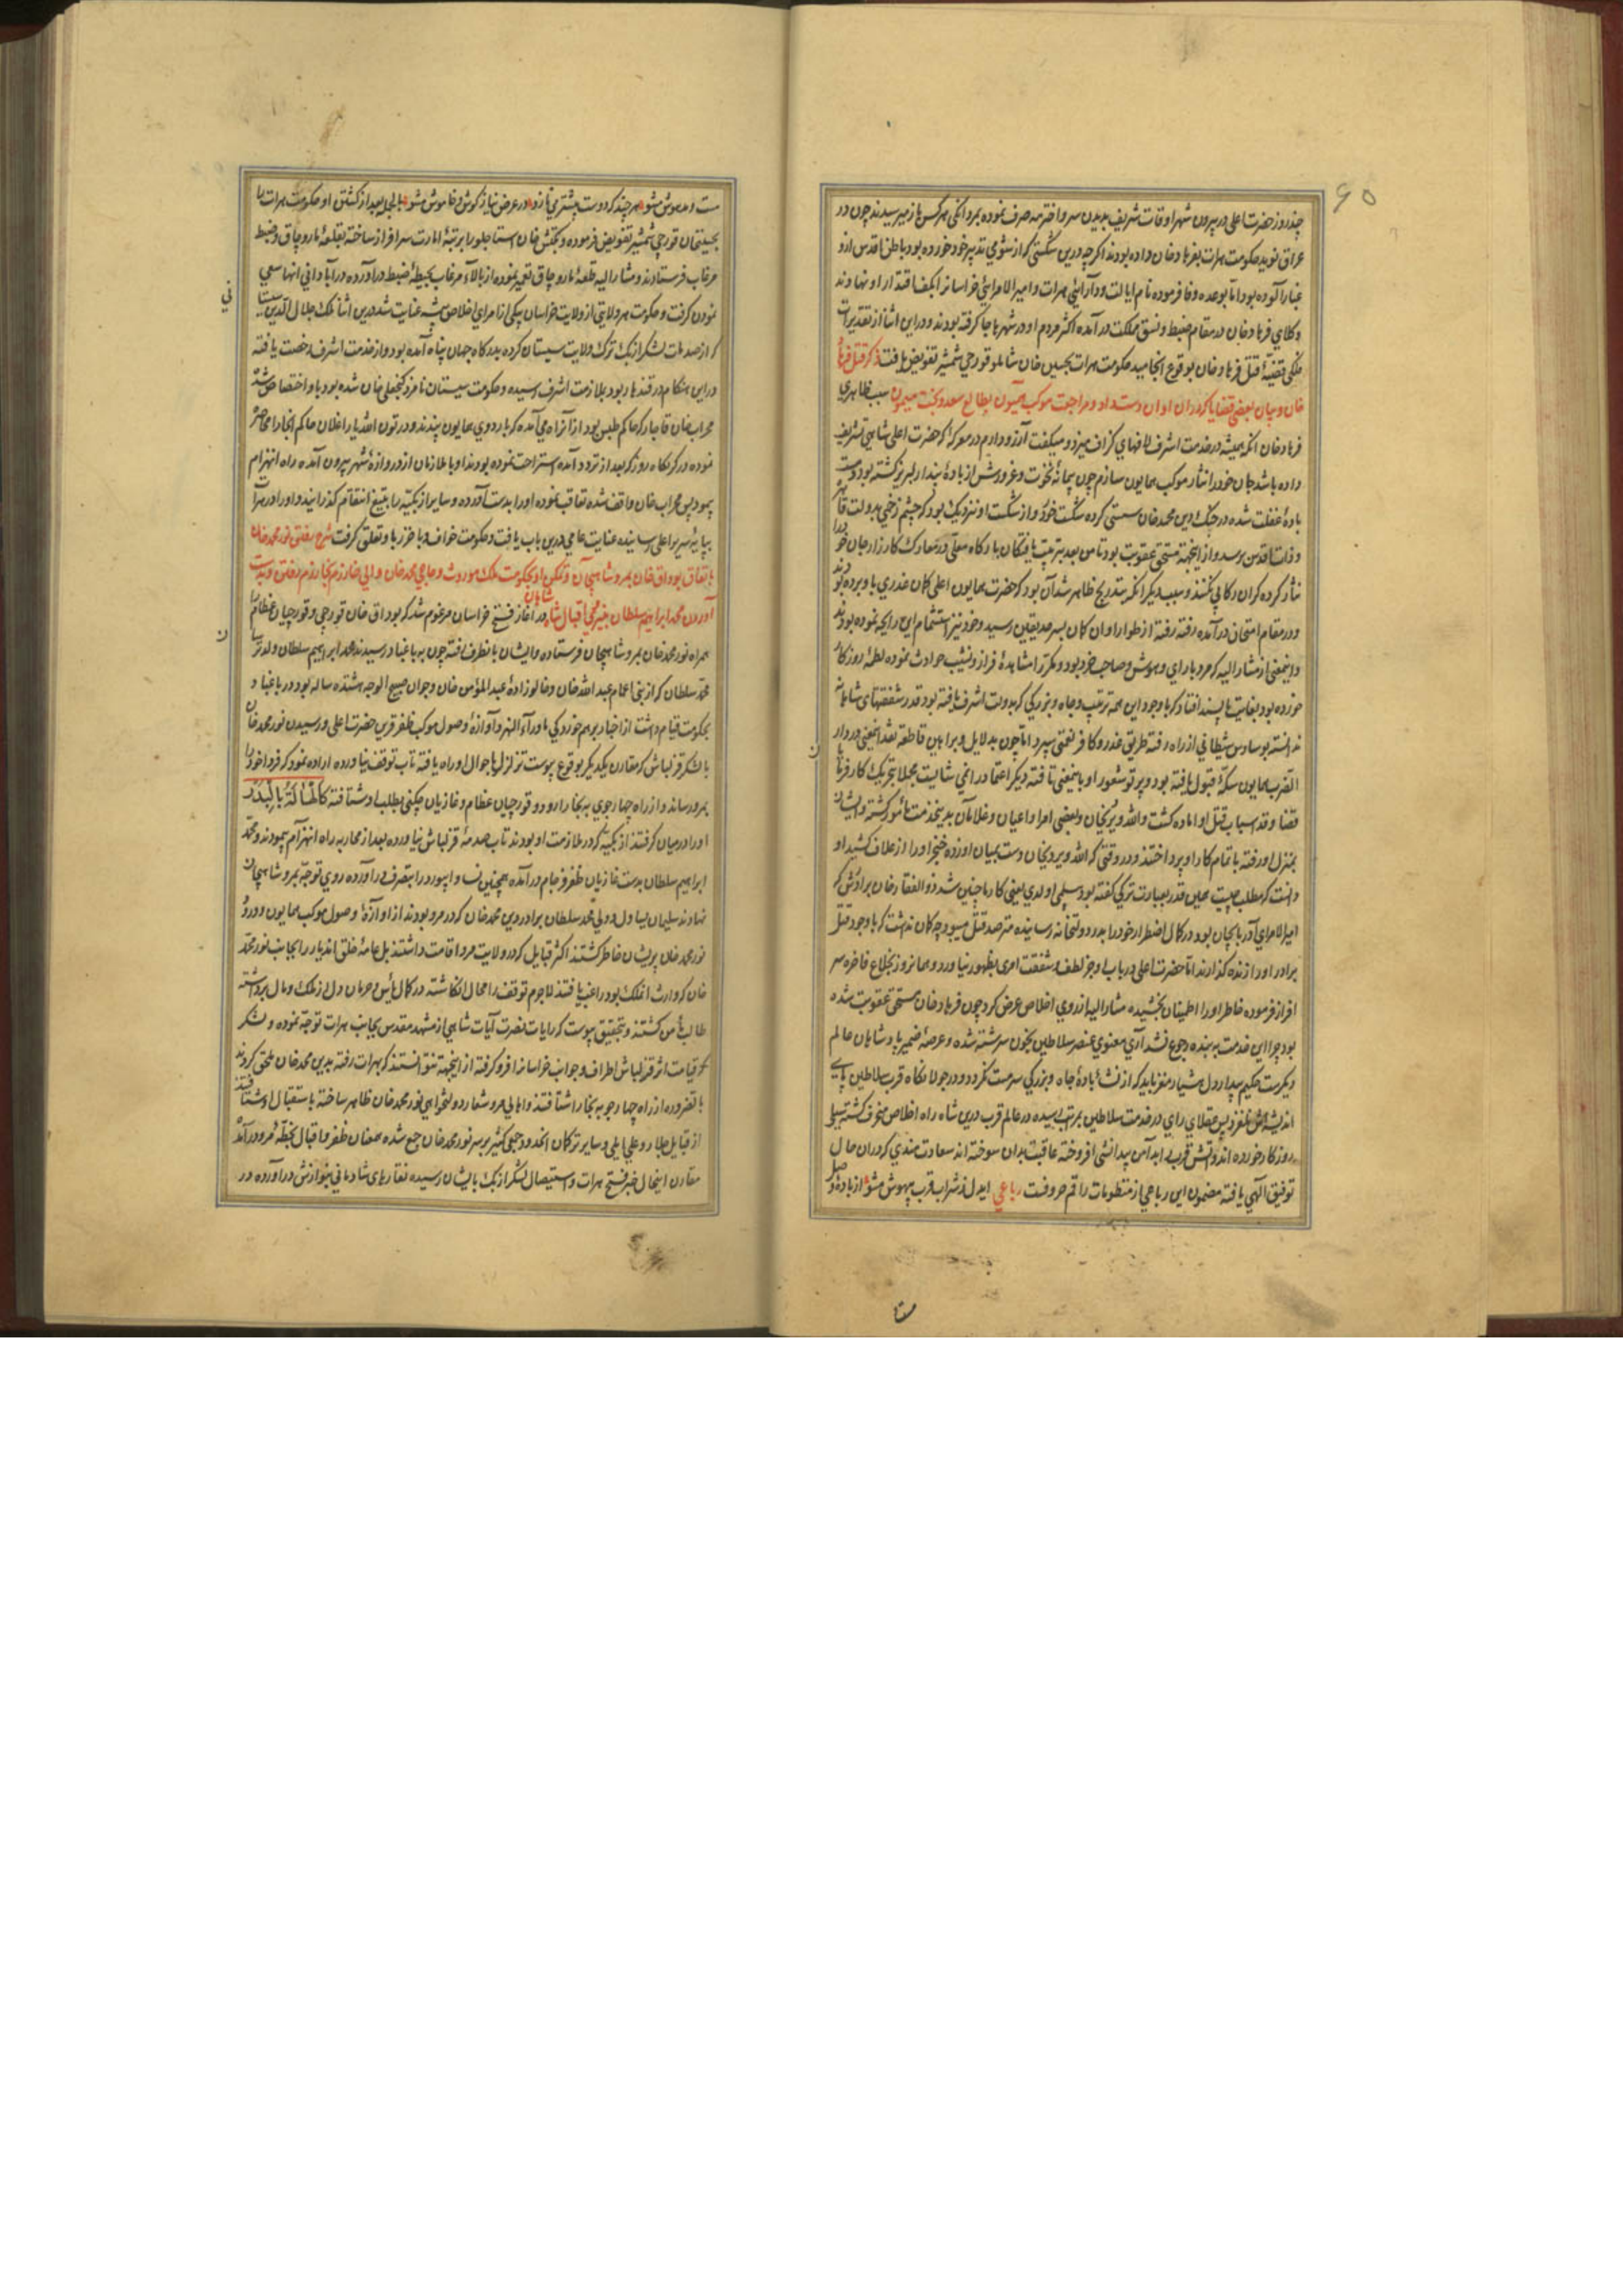 ۶۵
چند روز حضرت اعلی در بیرون شهر اوقات شریف بدیدن سرو اخترمه صرف نموده بمردانگی هر کس باز میرسیدند چون در
عراق نوید حکومت هرات بفرهاد خان داده بودند اگرچه درین شکستی که از شومی تدبیر خود خورده بود باطن اقدس ازو
غبارآلوده بود اما بوعده وفا فرموده نام ایالت و دارائی هرات و امیرالامرائی خراسان را بکف اقتدار او نهادند
وکلای فرهاد خان در مقام ضبط و نسق مملکت درآمده اکثر مردم او در شهر جا گرفته بودند و در این اثنا از تقدیرات
فلکی قضیۀ قتل فرهاد خان بوقوع انجامید حکومت هرات بحسین خان شاملو قورچی شمشیر تفویض یافت ذکر قتل فرهاد
خان و بیان بعضی قضایا که در آن اوان دست داد و مراجعت موکب همیون بطالع سعد و بخت میمون سبب ظاهری
فرهاد خان آنکه همیشه در خدمت اشرف لافهای گزاف میزد و میگفت آرزو دارم در معرکۀ که حضرت اعلی شاهی تشریف
داده باشد جان خود را نثار موکب همایون سازم چون پیمانۀ نخوت و غرورش از بادۀ پندار لبریز گشته بود و مست
بادۀ غفلت شده در جنگ دین محمد خان سستی کرده شکست خورد و از شکست او نزدیک بود که چشم زخمی بدولت قاهره
و ذات اقدس برسد و از اینجهة مستحق عقوبت بود تا من بعد تربیت یافتگان بارگاه معلی در معارک کارزار جان خود را
نثار کرده گران رکابی نکنند و سبب دیگر آنکه بتدریج ظاهر شد آن بود که حضرت همایون اعلی گمان غدری باو برده بودند
و در مقام امتحان درآمده رفته رفته از اطوار او آن گمان بسرحد یقین رسید و خود نیز استشمام این رایحه نموده بودند
و اینمعنی از مشارالیه که مرد با رای و هوش و صاحب خرد بود و مکرر مشاهدۀ فراز و نشیب حوادث نموده لطمۀ روزگار
خورده بود بغایت ناپسند افتاد که با وجود این همه ترتیب و جاه و بزرگی که بدولت اشرف یافته بود قدر شفقتهای شاهانه
ندانسته بوساوس شیطانی از راه رفته طریق غدر و کافر نعمتی سپرد اما چون بدلایل و براهین قاطعه نقد اینمعنی در دار
الضرب همایون سکۀ قبول یافته بود و پرتو شعور او باینمعنی تافته دیگر اعتماد را نمی شایست مجملا بتحریک کارفرمای
قضا و قدر اسباب قتل او آماده گشت و الله ویردیخان و بعضی امرا و اعیان و غلامان بدینخدمت مأمور گشته و ایشان
بمنزل او رفته باتمام کار او پرداختند و در وقتی که الله ویردیخان دست بمیان او زده خنجر او را از غلاف کشید او
دانست که مطلب چیست همین قدر بعبارت ترکی گفته بود بیله می اولدی یعنی کار ما چنین شد ذوالفقار خان برادرش که
امیرالامرای آذربایجان بود در کمال اضطرار خود را بدر دولتخانه رسانیده مترصد قتل میبود چه گمان نداشت که با وجود قتل
برادر او را زنده گذارند اما حضرت اعلی در باب او جز لطف و شفقت امری بظهور نیاورد و همانروز بخلاع فاخره سر
افراز فرموده خاطر او را اطمینان بخشیده مشارالیه از روی اخلاص عرض کرد چون فرهاد خان مستحق عقوبت شده
بود چرا این خدمت به بنده رجوع نشد آری معنوی عنصر سلاطین بخون سرشته شده و عرصۀ ضمیر پادشاهان عالم
دیگرست حکیم بیدار دل هشیار مغز باید که از نشئۀ بادۀ جاه و بزرگی سرمست نگردد و در جولانگاه قرب سلاطین پای
اندیشه‌اش نلغزد بس عقلای رای در خدمت سلاطین بمرتبه رسیده در عالم قرب درین شاه راه اخلاص منحرف گشته سیلی
روزگار خورده اند و آتش قرب را بدامن بیدانشی افروخته عاقبت بدان سوخته اند سعادت مندی که در آن حال
توفیق الهی یافته مضمون این رباعی از منظومات راقم حروفست رباعی ایدل ز شراب قرب بیهوش مشو از بادۀ وصل
مست و مدهوش مشو هر چند که دوست بیشتر می نازد در عرض نیاز کوش و خاموش مشو بالجمله بعد از کشتن او حکومت هرات را
بحسینخان قورچی شمشیر تفویض فرموده و بکتش خان استاجلو را برتبۀ امارت سرافراز ساخته بقلعۀ ماروچاق و ضبط
مرغاب فرستادند و مشارالیه قلعۀ ماروچاق تعمیر نموده از بالای مرغاب بحیطۀ ضبط درآورده در آبادانی آنها سعی
نمودن گرفت و حکومت هر ولایتی از ولایت خراسان بیکی از امرای اخلاص پیشه عنایت شد درین اثنا ملک جلال الدین سیستانی
که از صدمات لشکر ازبک ترک ولایت سیستان کرده بدرگاه جهان پناه آمده بود و از خدمت اشرف رخصت یافته
در این هنگام در قندهار بود بملازمت اشرف رسیده و حکومت سیستان نامزد گنجعلی خان شده بود باو اختصاص
محراب خان قاجار که حاکم طبس بود از آنراه می آمد که باردوی همایون پیوندد در تون الله یار اغلان حاکم آنجا را محاصره
نموده در گرمگاه روز که بعد از تردد آمده استراحت نموده بودند او با ملازمان از دروازۀ شهر بیرون آمده راه انهزام
پیمود پس محراب خان واقف شده تعاقب نموده او را بدست آورده و سایر ازبکیه را بتیغ انتقام گذرانیده او را در هرات
بپایۀ سریر اعلی رسانیده عنایت عامی درین باب یافت و حکومت خواف و باخرز باو تعلق گرفت شرح رفتن نور محمد خان
باتفاق بوداق خان بمرو شاهیجان و تمکین او بحکومت ملک موروث و حاجی محمد خان والی خوارزم بخوارزم رفتن و بدست
آوردن محمد ابراهیم سلطان بنیروی اقبال شاه شاهان در آغاز فتح خراسان مرقوم شد که بوداق خان قورچی و قورچیان عظام را
همراه نور محمد خان بمرو شاهیجان فرستاده و ایشان بآنطرف رفته چون به باغباد رسیدند محمد ابراهیم سلطان ولد ترسا
محمد سلطان که از بنی اعمام عبدالله خان و خالو زادۀ عبدالمؤمن خان و جوان صبیح الوجه هشتده ساله بود در باغباد
بحکومت قیام داشت از اخبار برهم خوردگی ماوراء النهر و آوازۀ وصول موکب ظفر قرین حضرت اعلی و رسیدن نور محمد خان
با لشکر قزلباش که مقارن یکدیگر بوقوع پیوست تزلزل باحوال او راه یافته تاب توقف نیاورده اراده نمود که فردا خود را
بمرو رساند و از راه چهارجوی به بخارا رود و قورچیان عظام و غازیان چگنی بطلب او شتافته کالهالة بالبدر
او را در میان گرفتند ازبکیه که در ملازمت او بودند تاب صدمۀ قزلباش نیاورده بعد از محاربه راه انهزام پیمودند و محمد
ابراهیم سلطان بدست غازیان ظفر فرجام درآمده همچنین نسا و ابیورد را بتصرف درآورده روی توجه بمرو شاهیجان
نهادند سلیمان یساول و ولی محمد سلطان برادر دین محمد خان که در مرو بودند از آوازۀ وصول موکب همایون و ورود
نور محمد خان پریشان خاطر گشتند اکثر قبایل که در ولایت مرو اقامت داشتند بل عامۀ خلق آندیار را بجانب نور محمد
خان که وارث آنملک بود راغب یافتند لاجرم توقف را محال انگاشته در کمال یأس و حرمان دل از ملک و مال برداشته
طالب مأمن گشتند و بتحقیق پیوست که رایات نصرت آیات شاهی از مشهد مقدس بجانب هرات توجه نموده و لشکر
قیامت اثر قزلباش اطراف و جوانب خراسان را فرو گرفته از اینجهة نتوانستند که بهرات رفته بدین محمد خان ملحق گردند
بالضروره از راه چهارجو به بخارا شتافتند و اهالی مرو شعار دولتخواهی نور محمد خان ظاهر ساخته باستقبال او شتافتند
از قبایل جلایر و علی ایلی و سایر ترکمانان آنحدود جمعی کثیر بر سر نور محمد خان جمع شده همعنان ظفر و اقبال بخطۀ مرو درآمدند
مقارن اینحال خبر فتح هرات و استیصال لشکر ازبک بایشان رسیده نقارهای شادمانی بنوازش درآورده در